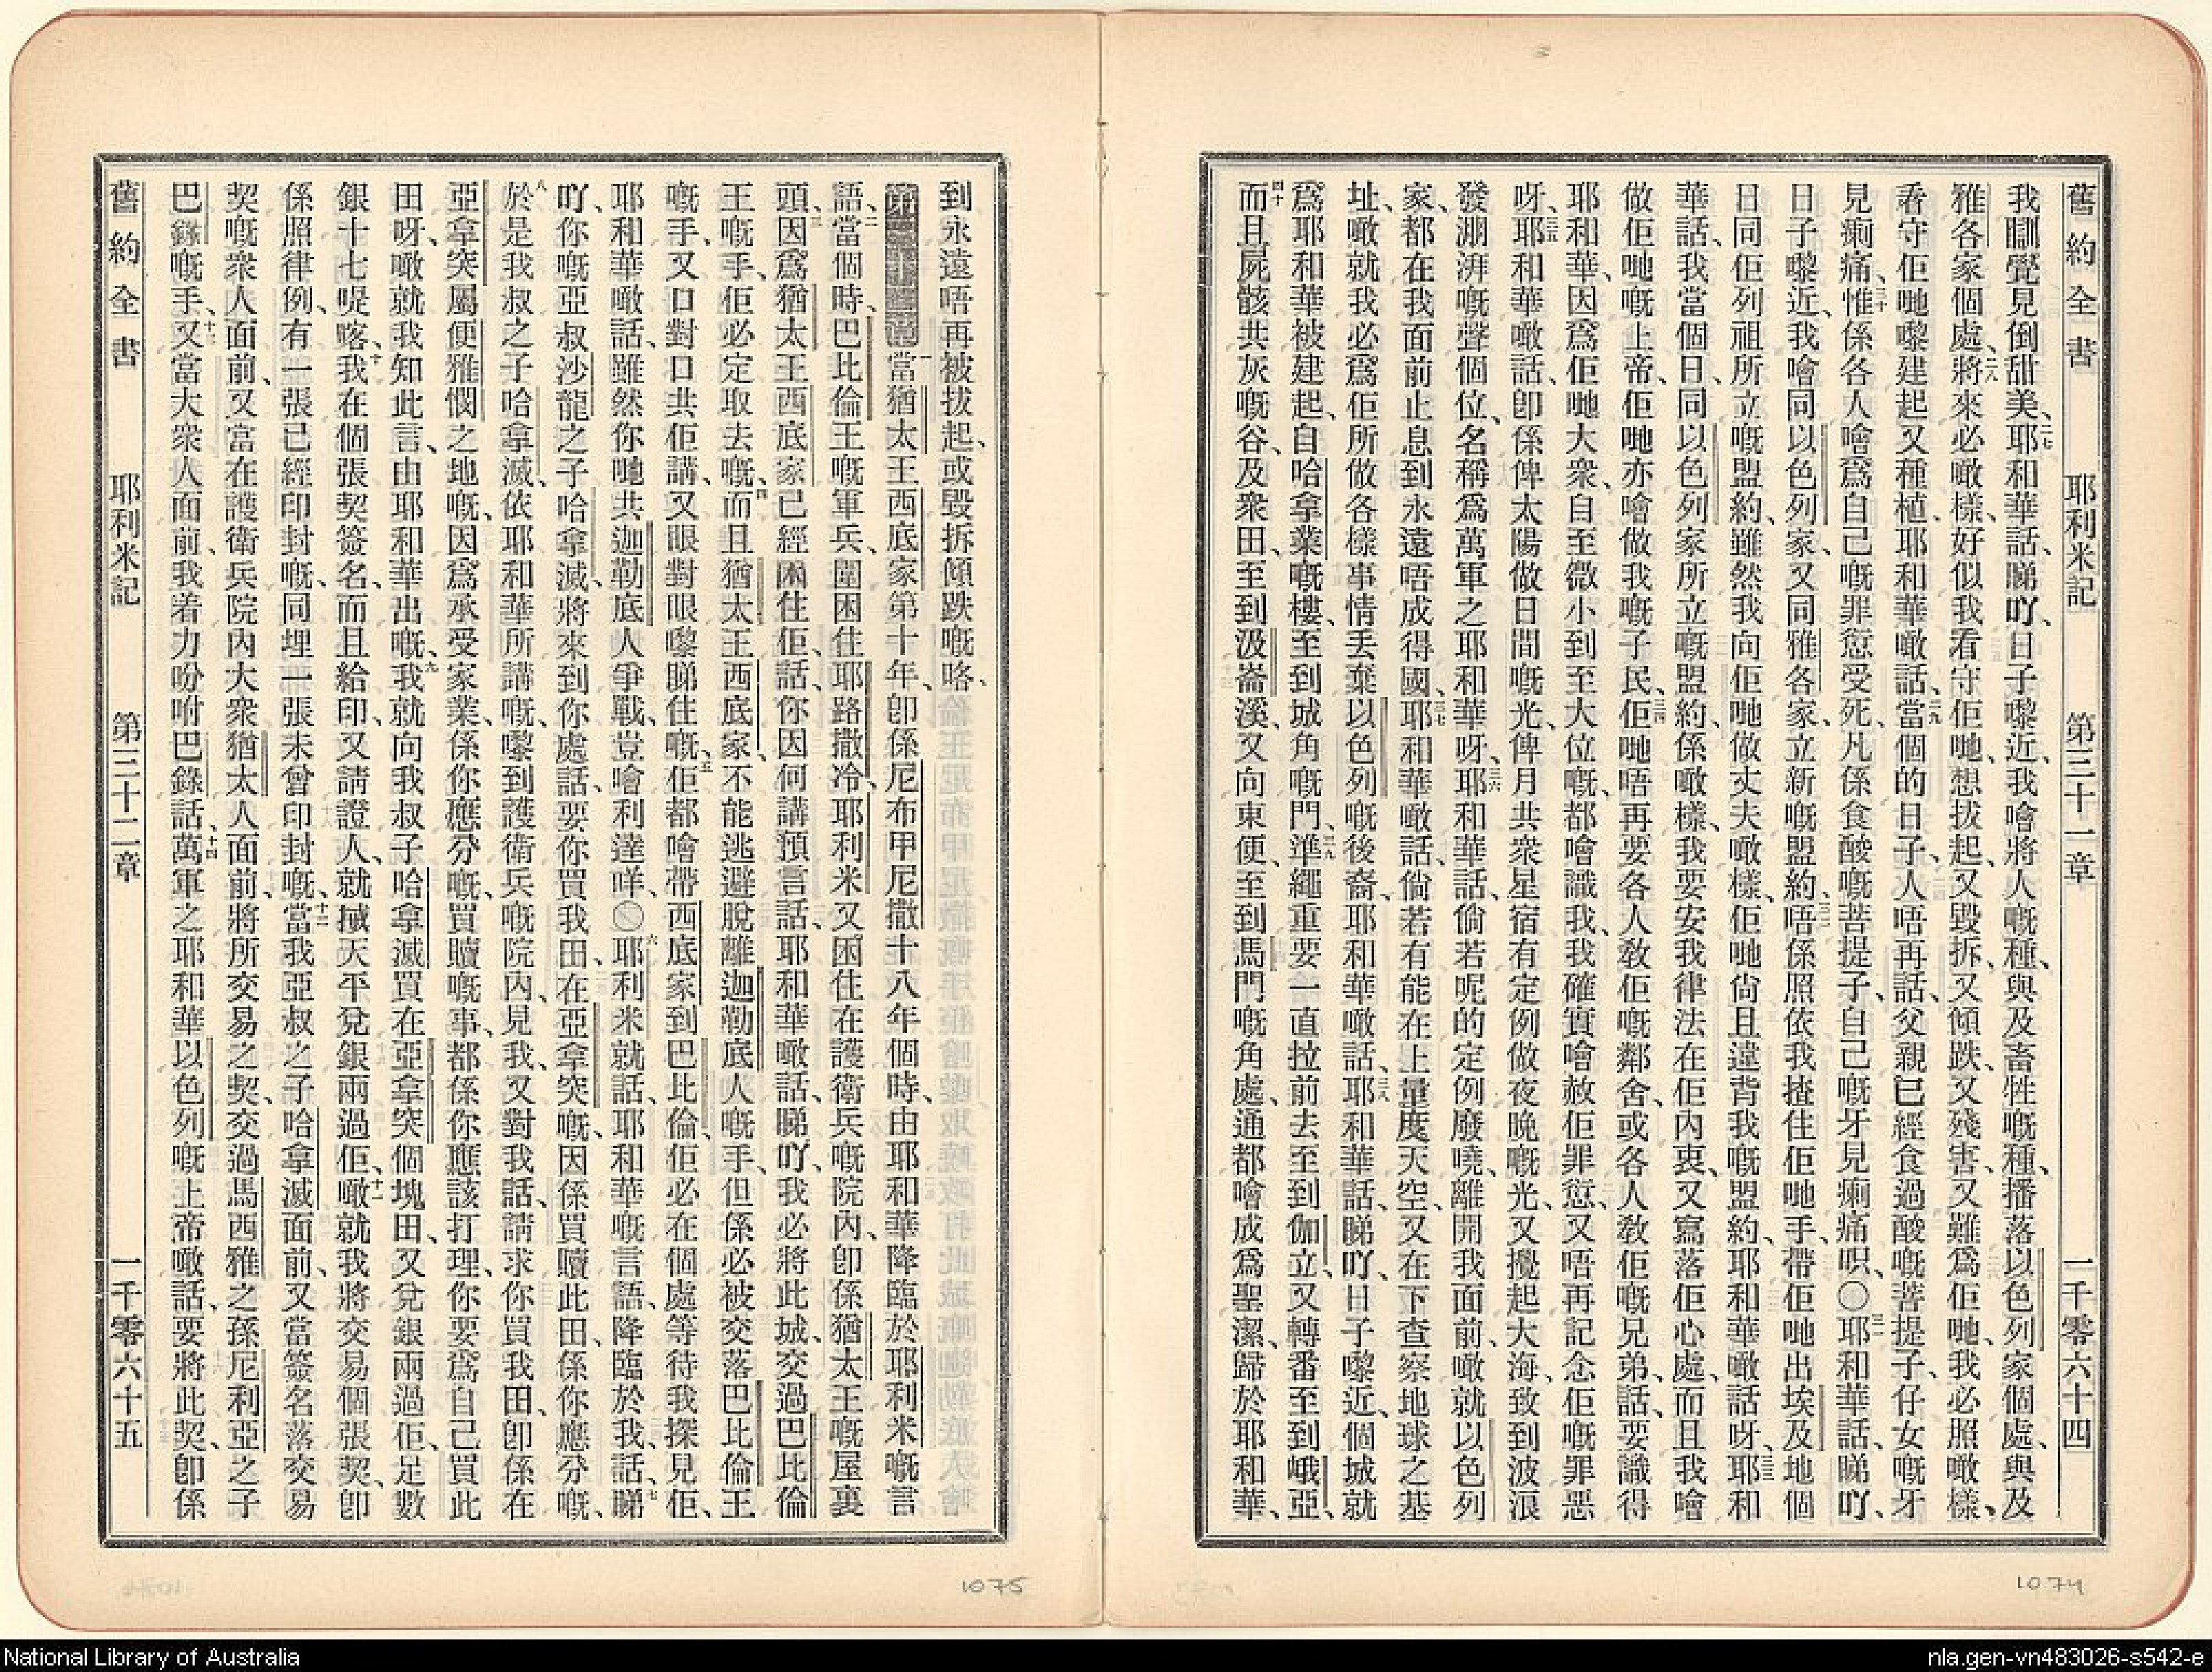 舊約全書 耶利米記 第三十一章 一千零六十四
我瞓覺見倒甜美、二七耶和華話、睇吖、日子嚟近、我噲將人嘅種、與及畜牲嘅種、播落以色列家個處、與及
雅各家個處、二八將來必噉樣、好似我看守佢哋、想拔起、又毀拆、又傾跌、又殘害、又難爲佢哋、我必照噉樣、
看守佢哋嚟建起、又種植、耶和華噉話、二九當個的日子、人唔再話、父親已經食過酸嘅菩提子、仔女嘅牙
見痢痛、三十惟係各人噲爲自己嘅罪愆受死、凡係食酸嘅菩提子、自己嘅牙見痢痛呮○三一耶和華話、睇吖、
日子嚟近、我噲同以色列家、又同雅各家、立新嘅盟約、三二唔係照依我揸住佢哋手、帶佢哋出埃及地個
日、同佢列祖所立嘅盟約、雖然我向佢哋做丈夫噉樣、佢哋尙且違背我嘅盟約、耶和華噉話呀、三三耶和
華話、我當個日、同以色列家所立嘅盟約、係噉樣、我要安我律法在佢內衷、又寫落佢心處、而且我噲
做佢哋嘅上帝、佢哋亦噲做我嘅子民、三四佢哋唔再要各人敎佢嘅鄰舍、或各人敎佢嘅兄弟、話、要識得
耶和華、因爲佢哋大衆、自至微小到至大位嘅、都噲識我、我確實噲赦佢罪愆、又唔再記念佢嘅罪惡
呀、三五耶和華噉話、卽係俾太陽做日間嘅光、俾月共衆星宿有定例做夜晚嘅光、又攪起大海、致到波浪
發淜湃嘅聲個位、名稱爲萬軍之耶和華呀、三六耶和華話、倘若呢的定例廢曉、離開我面前、噉就以色列
家、都在我面前止息、到永遠唔成得國、三七耶和華噉話、倘若有能在上量度天空、又在下查察地球之基
址、噉就我必爲佢所做各樣事情、丢棄以色列嘅後裔、耶和華噉話、三八耶和華話、睇吖、日子嚟近、個城就
爲耶和華被建起、自哈拿業嘅樓、至到城角嘅門、三九準繩重要一直拉前去至到伽立、又轉番至到峨亞、
四十而且屍骸共灰嘅谷、及衆田、至到汲崙溪、又向東便、至到馬門嘅角處、通都噲成爲聖潔、歸於耶和華、
到永遠唔再被拔起、或毀拆傾跌嘅咯、
第三十二章 一當猶太王西底家第十年、卽係尼布甲尼撒十八年個時、由耶和華降臨於耶利米嘅言
語、二當個時、巴比倫王嘅軍兵、圍困住耶路撒冷、耶利米又困住在護衛兵嘅院內、卽係猶太王嘅屋裏
頭、三因爲猶太王西底家已經困住佢、話、你因何講預言話、耶和華噉話、睇吖、我必將此城、交過巴比倫
王嘅手、佢必定取去嘅、四而且猶太王西底家、不能逃避脫離迦勒底人嘅手、但係必被交落巴比倫王
嘅手、又口對口共佢講、又眼對眼嚟睇住嘅、五佢都噲帶西底家到巴比倫、佢必在個處等待我探見佢、
耶和華噉話、雖然你哋共迦勒底人爭戰、豈噲利達咩、○六耶利米就話、耶和華嘅言語、降臨於我、話、七睇
吖、你嘅亞叔沙龍之子哈拿滅、將來到你處話、要你買我田、在亞拿突嘅、因係買贖此田、係你應分嘅、
八於是我叔之子哈拿滅、依耶和華所講嘅、嚟到護衛兵嘅院內、見我、又對我話、請求你買我田、卽係在
亞拿突、屬便雅憫之地嘅、因爲承受家業、係你應分嘅、買贖嘅事、都係你應該打理、你要爲自己買此
田呀、噉就我知此言、由耶和華出嘅、九我就向我叔子哈拿滅買在亞拿突個塊田、又兌銀兩過佢、足數
銀十七嚍咯、十我在個張契簽名、而且給印、又請證人、就搣天平兌銀兩過佢、十一噉就我將交易個張契、卽
係照律例、有一張已經印封嘅、同埋一張未曾印封嘅、十二當我亞叔之子哈拿滅面前、又當簽名落交易
契嘅衆人面前、又當在護衛兵院內大衆猶太人面前、將所交易之契、交過馬西雅之孫、尼利亞之子
巴錄嘅手、十三又當大衆人面前、我着力吩咐巴錄話、十四萬軍之耶和華以色列嘅上帝噉話、要將此契、卽係
舊約全書 耶利米記 第三十二章 一千零六十五
1075
1074
National Library of Australia
nla.gen-vn483026-s542-e